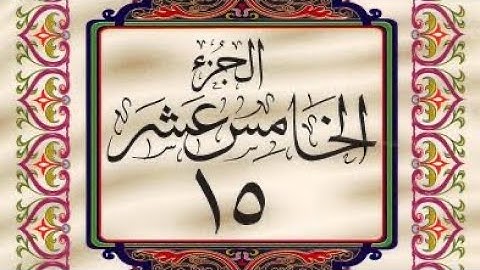 الجزء
الخامس عشر
١٥